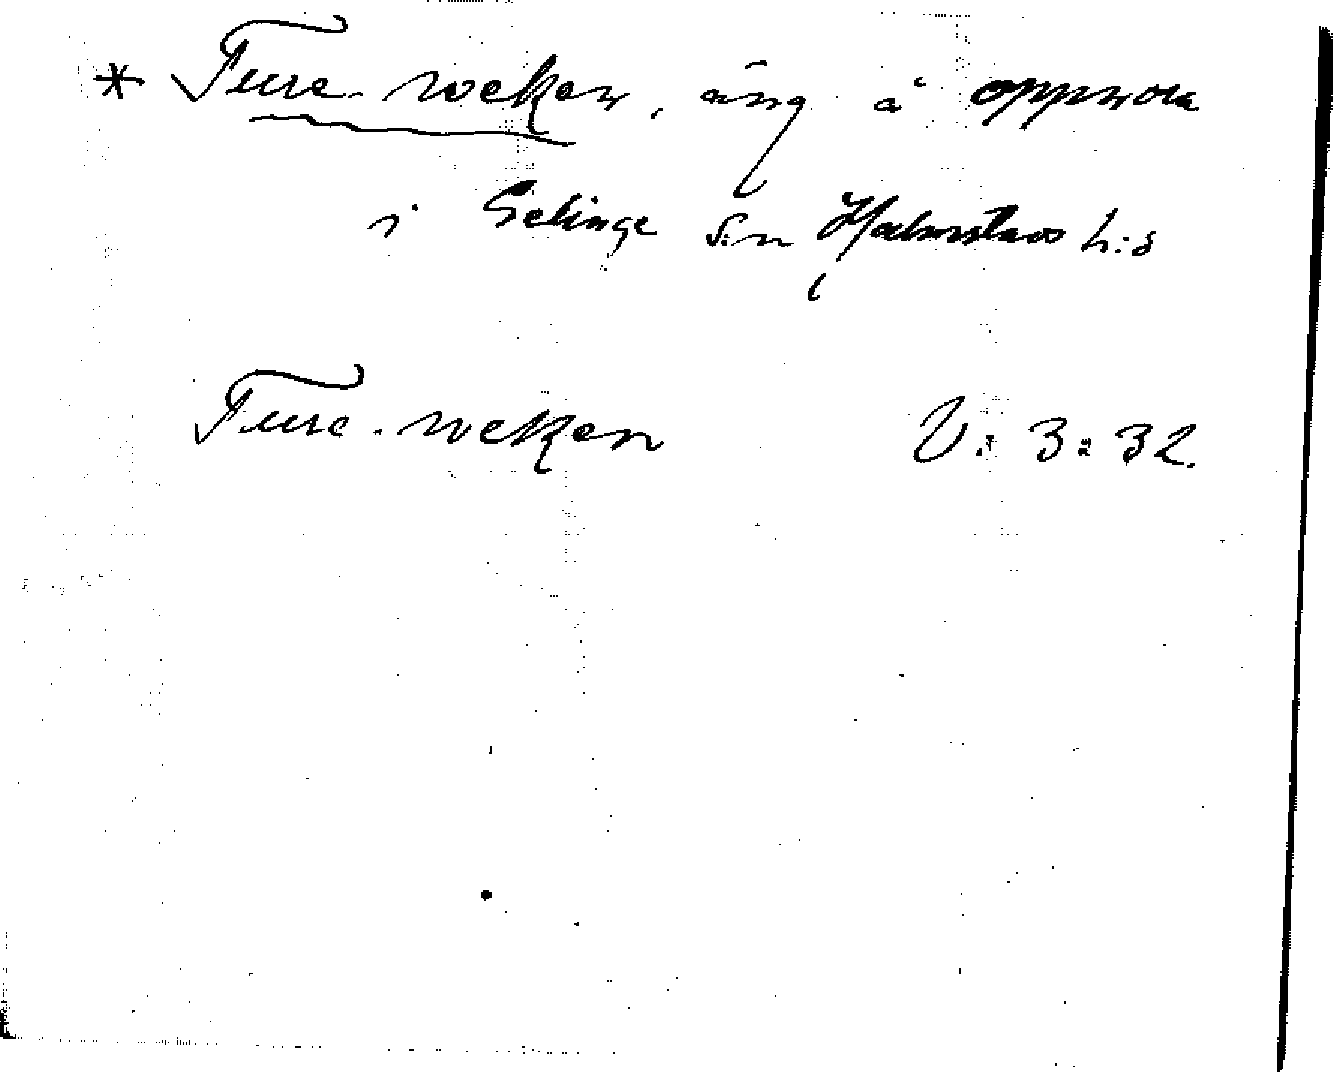 * Ture-weken, äng å oppnora
i Getinge S:n Halmstads h:d
Ture-weken V: 3: 32.